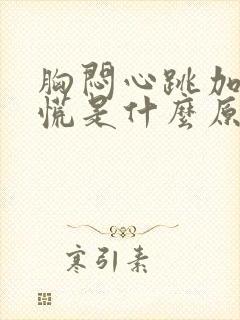 胸悶心跳加
慌是什麼原
寒引素